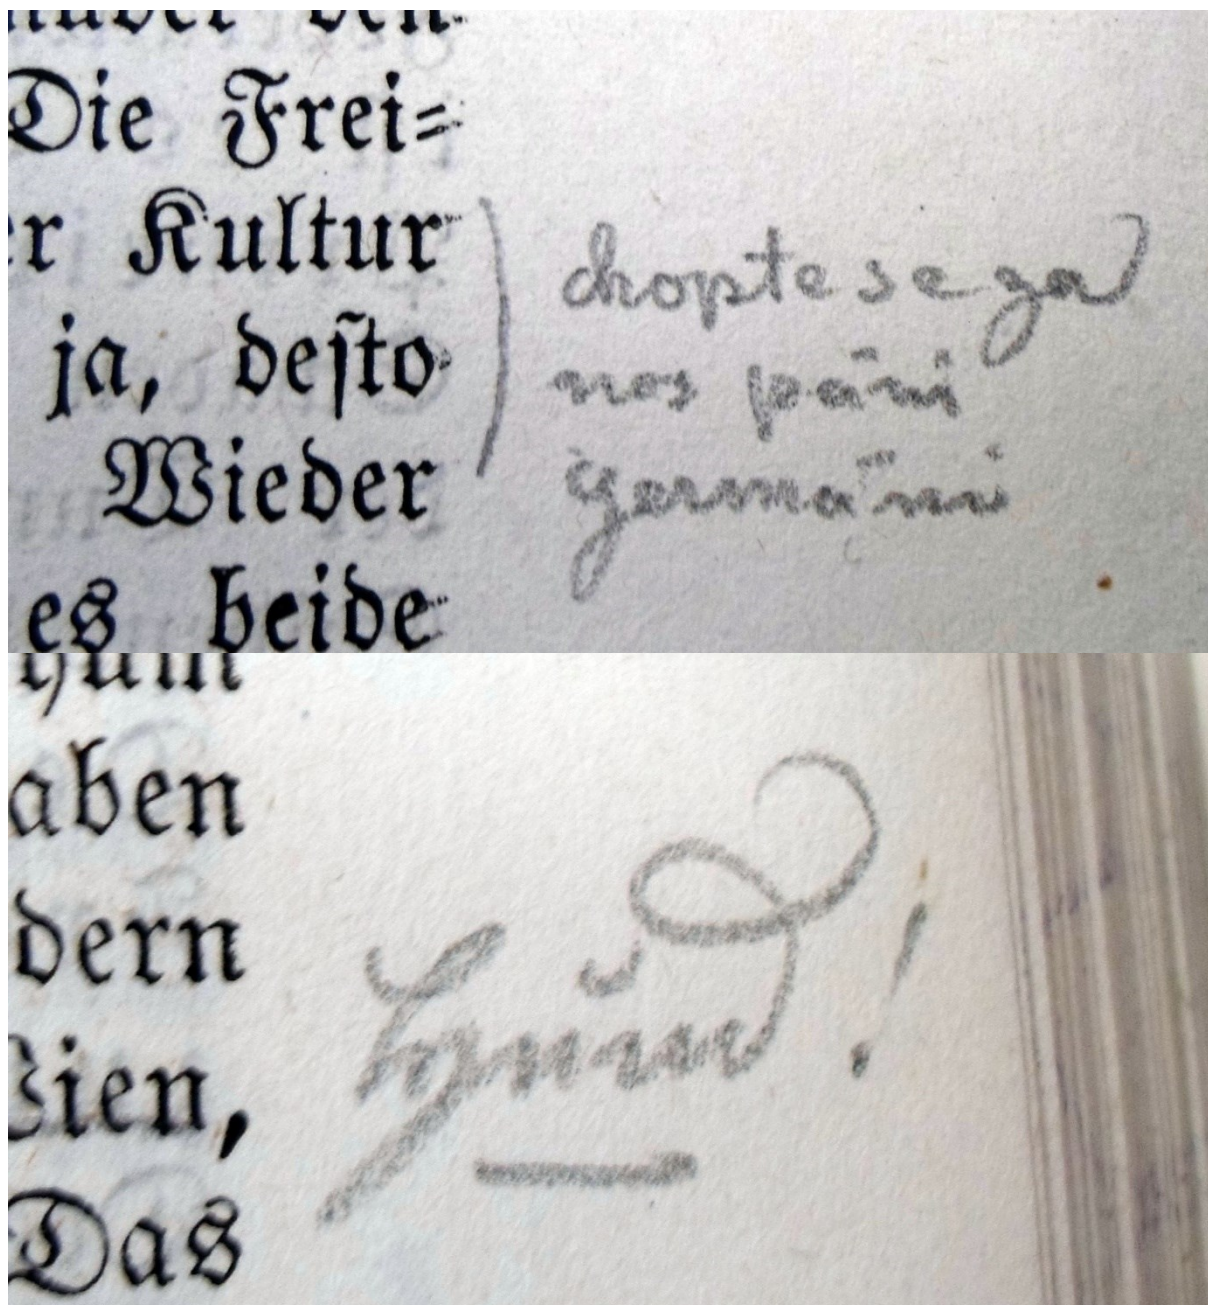 Die Frei=
er Kultur
ja, desto
Wieder
es beide
chopte se za
nos páni
germáni
aben
dern
Wien,
Das
Schund!